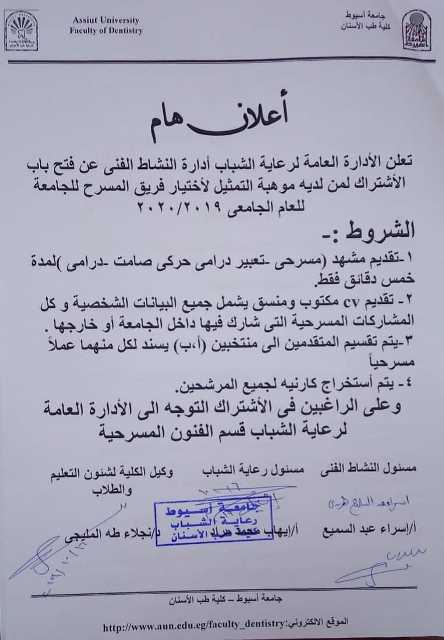 Assiut University
Faculty of Dentistry
جامعة أسيوط
كلية طب الأسنان
أعلان هام
تعلن الأدارة العامة لرعاية الشباب أدارة النشاط الفنى عن فتح باب
الأشتراك لمن لديه موهبة التمثيل لأختيار فريق المسرح للجامعة
للعام الجامعى ٢٠٢٠/٢٠١٩
الشروط :-
١-تقديم مشهد (مسرحى -تعبير درامى حركى صامت -درامى )لمدة
خمس دقائق فقط.
٢- تقديم cv مكتوب ومنسق يشمل جميع البيانات الشخصية و كل
المشاركات المسرحية التى شارك فيها داخل الجامعة أو خارجها .
٣-يتم تقسيم المتقدمين الى منتخبين (أ،ب) يسند لكل منهما عملاً
مسرحياً
٤- يتم أستخراج كارنيه لجميع المرشحين.
وعلى الراغبين فى الأشتراك التوجه الى الأدارة العامة
لرعاية الشباب قسم الفنون المسرحية
مسئول النشاط الفنى مسئول رعاية الشباب وكيل الكلية لشئون التعليم
والطلاب
جامعة أسيوط
رعاية الشباب
طب الأسنان
أ/إسراء عبد السميع أ/إيهاب محمد د/نجلاء طه المليجي
جامعة أسيوط – كلية طب الأسنان
الموقع الالكتروني:http://www.aun.edu.eg/faculty_dentistry